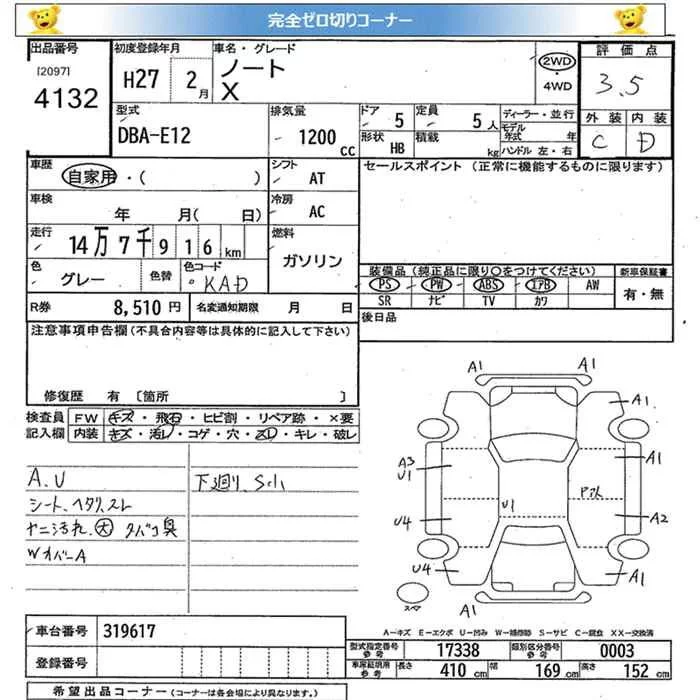 完全ゼロ切りコーナー
出品番号 初度登録年月 車名・グレード 評価点
[2097] 4132 H27 2月 ノート X 2WD・4WD 3.5
型式 排気量 ドア 定員 ディーラー・並行 外装 内装
DBA-E12 1200cc 5 5人 モデル年式 年 C D
形状 HB 積載 kg ハンドル 左・右
車歴 シフト セールスポイント (正常に機能するものに限ります)
自家用・( ) AT
車検 冷房
年 月( 日) AC
走行 燃料
14万7千916km ガソリン
色 色替 色コード 装備品(純正品に限り○をつけてください) 新車保証書
グレー KAD PS PW ABS エアB AW 有・無
SR ナビ TV カワ
R券 8,510円 名変通知期限 月 日 後日品
注意事項申告欄(不具合内容等は具体的に記入して下さい)
修復歴 有 [箇所 ]
検査員 FW キズ・飛石・ヒビ割・リペア跡・×要
記入欄 内装 キズ・汚レ・コゲ・穴・スレ・キレ・破レ
A.U 下廻り.Sch
シート.ヘタリ.スレ
ヤニ汚れ.大 タバコ臭
WオバーA
A1 A1
A1
A3 U1 A1
U1 アト
U4 A2
U4 A1
スペ A1
車台番号 319617
A-キズ E-エクボ U-凹み W-補修跡 S-サビ C-腐食 XX-交換済
登録番号 型式指定番号参考 17338 類別区分番号参考 0003
車庫証明用参考 長さ 410cm 幅 169cm 高さ 152cm
希望出品コーナー (コーナーは各会場により異なります。)